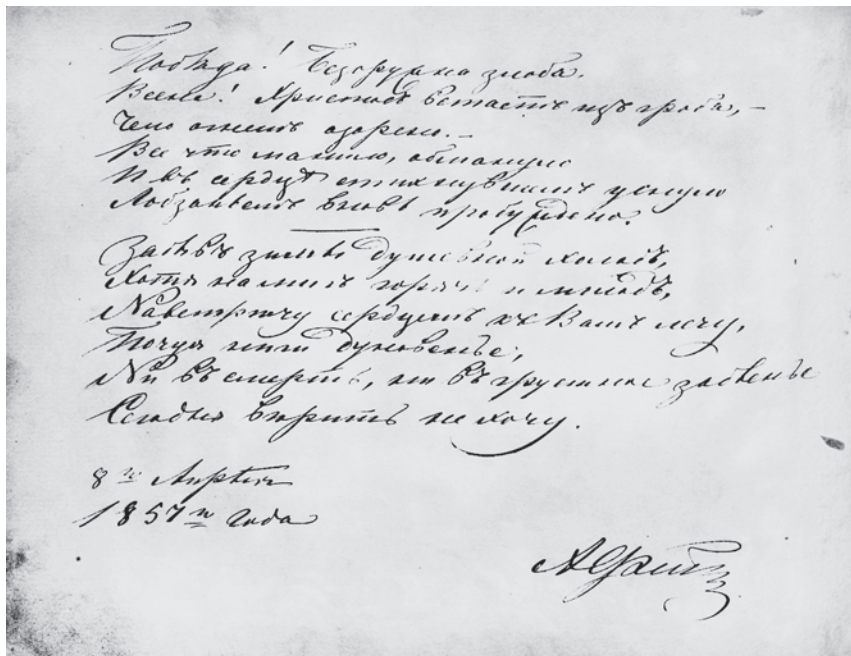 Побѣда! Безоружна злоба.
Весна! Христосъ встаетъ изъ гроба, —
Чело огнемъ озарено. —
Все что манило, обмануло
И въ сердцѣ стихнувшемъ уснуло
Лобзаньемъ вновь пробуждено.
Забывъ зимы душевной холодъ,
Хотя на мигъ горячъ и молодъ,
Навстрѣчу сердцемъ къ Вамъ лечу,
Почуя нѣги дуновенье,
Ни въ смерть, ни въ грустное забвенье
Сегодня вѣрить не хочу.
8го Апрѣля
1857го Года
А Фетъ